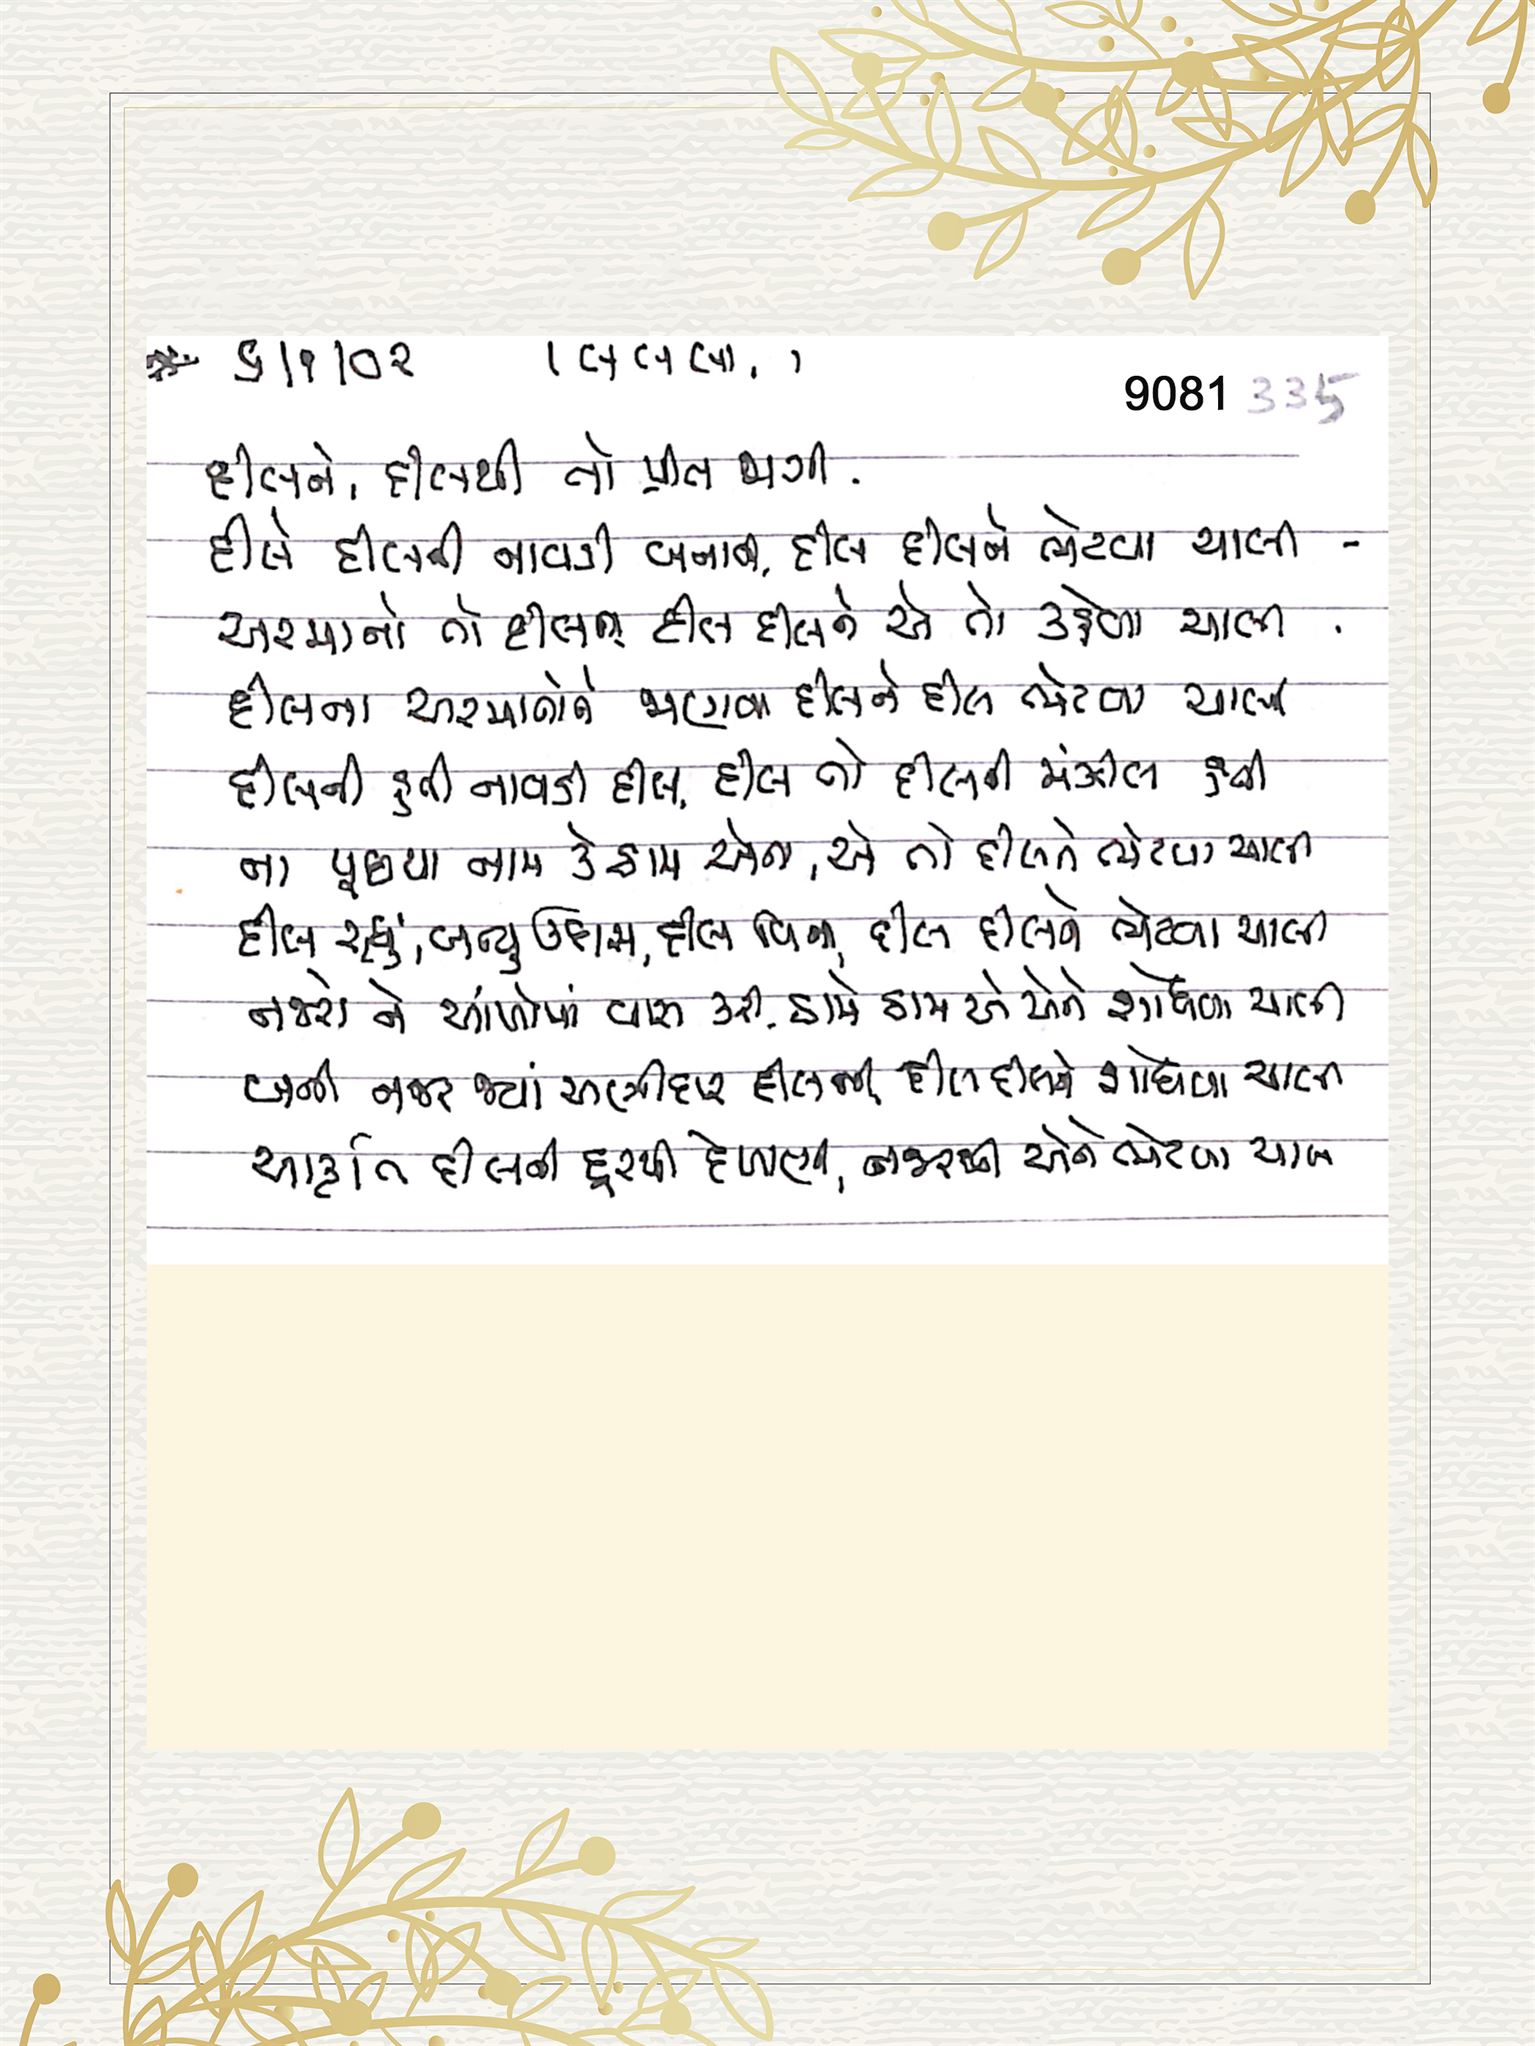 ૬/૧/૦૨ (લ લ લા. )
9081 335
દીલને, દીલથી તો પ્રીત જાગી.
દીલે દીલની નાવડી બનાવી, દીલ દીલને ભેટવા ચાલી -
અરમાનો તો દીલના દીલ દીલને એ તો ચાલી .
દીલના અરમાનોને દીલને દીલ ભેટવા ચાલી
દીલની હતી નાવડી દીલ, દીલ તો દીલની મંઝીલ હતી
ના પૂછયા નામ કે ઠામ એના, એ તો દીલને ભેટવા ચાલી
દીલ રહ્યું, બન્યુ ઉદાસ, દીલ વિના, દીલ દીલને ભેટવા ચાલી
નજરો ને આંખોમાં વાસ કરી, ઠામે ઠામ એ એને શોધવા ચાલી
બની નજર જ્યાં ભાગીદાર દીલની, દીલ દીલને શોધવા ચાલી
આકૃતિ દીલની દૂરથી દેખાણી, નજરથી એને ભેટવા ચાલી